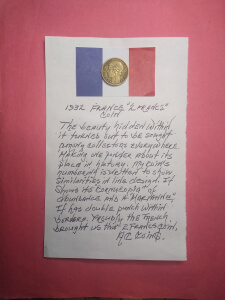 1932 FRANCE "2 FRANCS"
COIN
The beauty hidden within
it turned out to be sought
among collectors everywhere
Making one ponder about its
place in history. My coin's
numbering is written to show
similarities in line design. It
shows its "cornucopia" of
abundance and a "Marianne".
It has double punch within
borders. Proudly the French
brought us that 2 Francs coin.